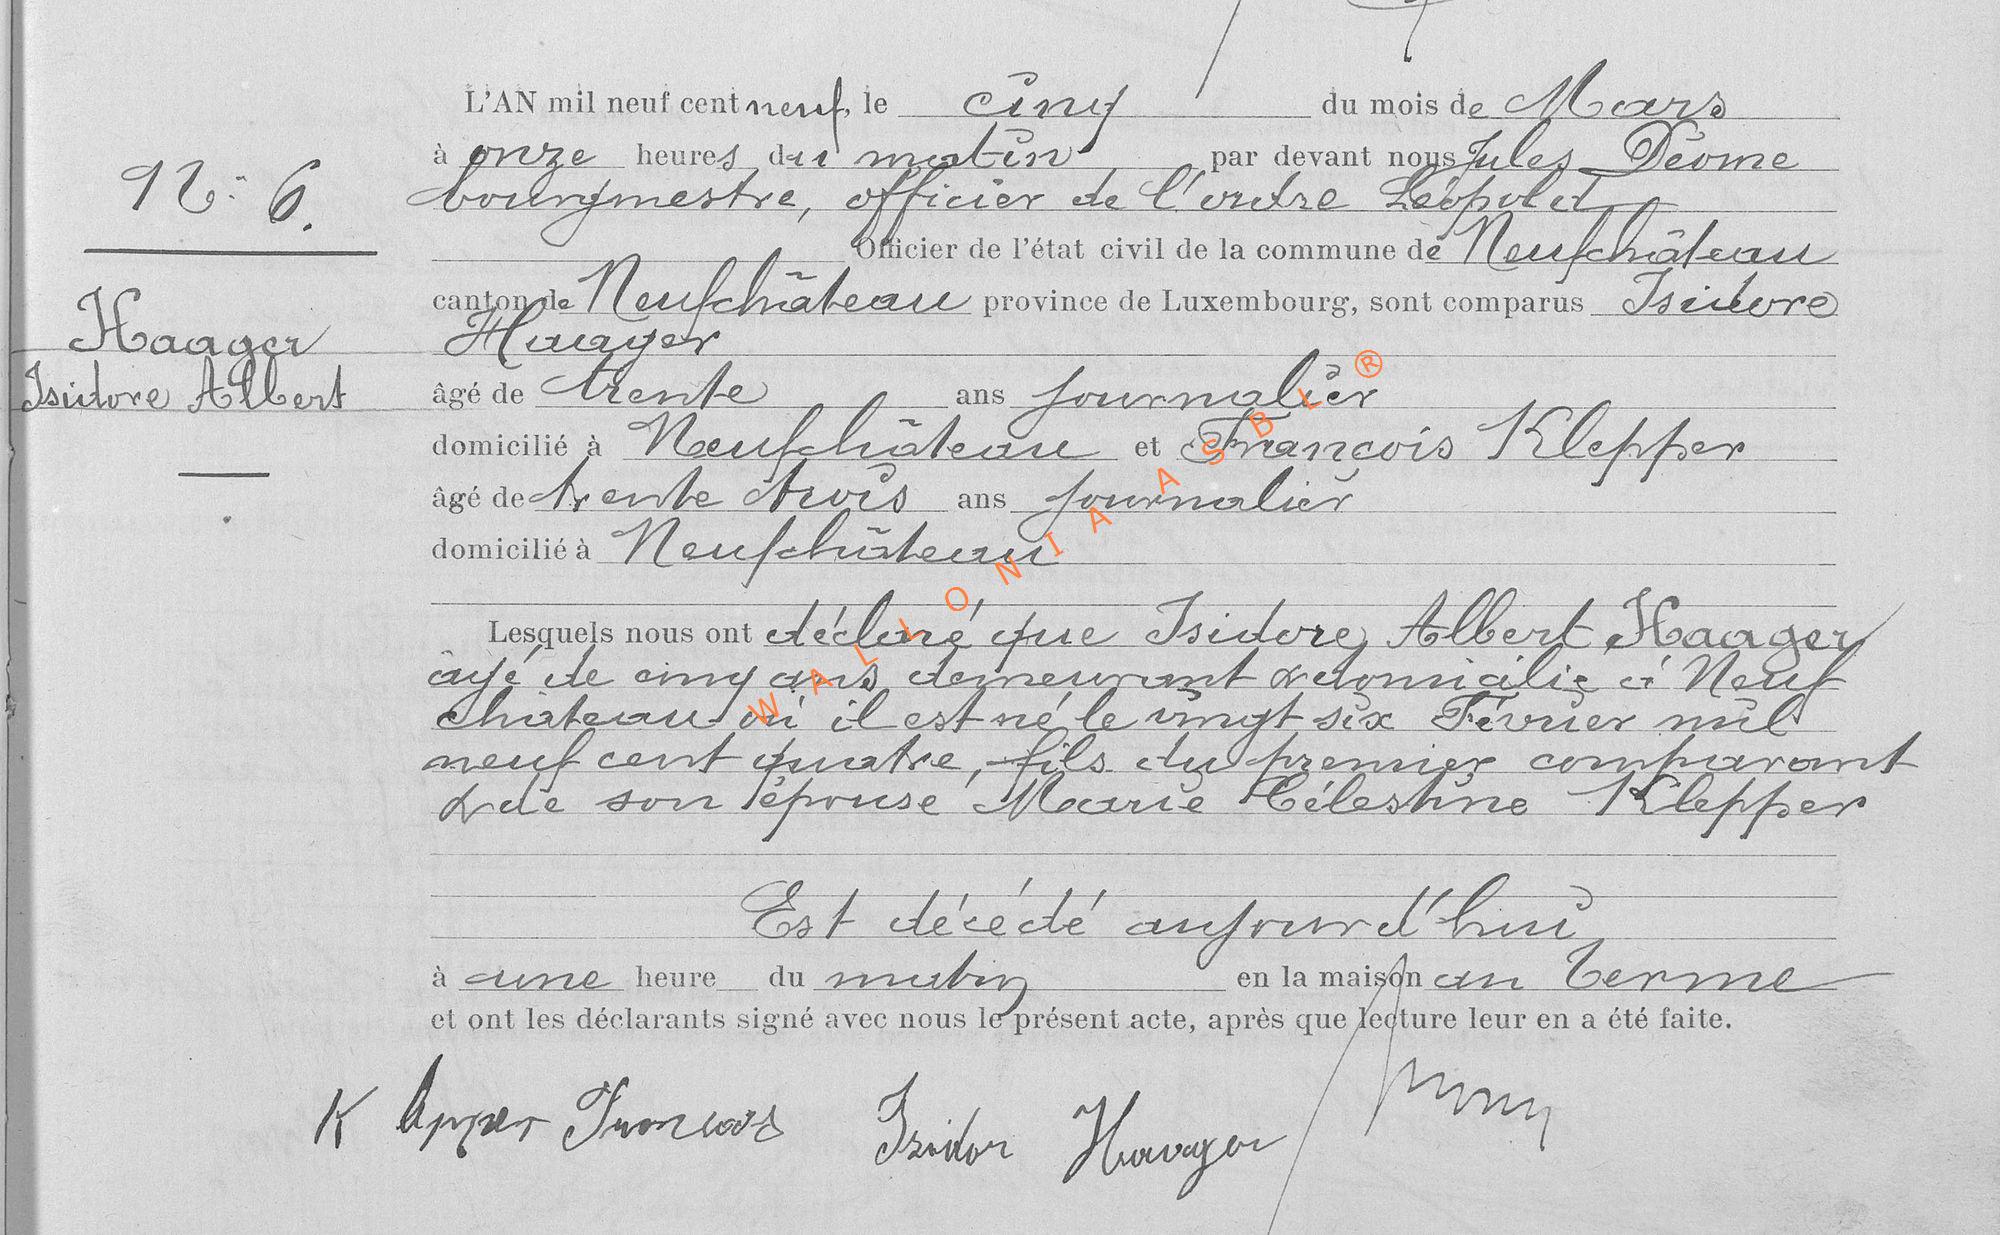 L'AN mil neuf cent neuf, le cinq du mois de Mars
à onze heures du matin par devant nous Jules Déome
bourgmestre, officier de l'ordre Léopold
Officier de l'état civil de la commune de Neufchâteau
canton de Neufchâteau province de Luxembourg, sont comparus Isidore
Haager
âgé de trente ans journalier
domicilié à Neufchâteau et François Klepper
âgé de trente trois ans journalier
domicilié à Neufchâteau
Lesquels nous ont déclaré que Isidore, Albert Haager
âgé de cinq ans demeurant & domicilié à Neuf
château où il est né le vingt six Février mil
neuf cent quatre, fils du premier comparant
& de son épouse Marie Célestine Klepper
Est décédé aujourd'hui
à une heure du matin en la maison au Terme
et ont les déclarants signé avec nous le présent acte, après que lecture leur en a été faite.
Klepper François Isidor Haager
N° 6.
Haager
Isidore Albert
WALLONIA ASBL ®